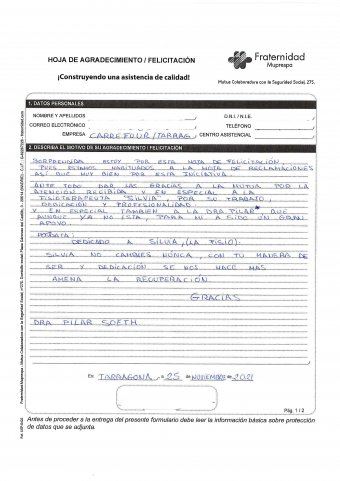 HOJA DE AGRADECIMIENTO / FELICITACIÓN
Fraternidad
Muprespa
¡Construyendo una asistencia de calidad!
Mutua Colaboradora con la Seguridad Social, 275.
1. DATOS PERSONALES
NOMBRE Y APELLIDOS
D.N.I. / N.I.E.
CORREO ELECTRÓNICO
TELÉFONO
EMPRESA CARREFOUR/TARRAG.
CENTRO ASISTENCIAL
2. DESCRIBA EL MOTIVO DE SU AGRADECIMIENTO / FELICITACIÓN
SORPRENDIDA ESTOY POR ESTA NOTA DE FELICITACION,
PUES ESTAMOS HABITUADOS A LA HOJTA DE RECLAMACIONES
ASI QUE MUY BIEN POR ESTA INICIATIVA.
ANTE TODO DAR LAS GRACIAS A LA MUTUA POR LA
ATENCIÓN RECIBIDA Y EN ESPECIAL A LA
FISIOTERAPEUTA "SILVIA", POR SU TRABAJO,
DEDICACIÓN Y PROFESIONALIDAD.
Y EN ESPECIAL TAMBIEN A LA DRA PILAR* QUE
AUNQUE YA NO ESTA, PARA MI A SIDO UN GRAN
APOYO.
POSDATA:
DEDICADO A SILVIA, (LA FISIO):
SILVIA NO CAMBIES NUNCA, CON TU MANERA DE
SER Y DEDICACIÓN SE NOS HACE MAS
AMENA LA RECUPERACIÓN.
GRACIAS
DRA PILAR SOETH
En TARRAGONA, a 25 de NOVIEMBRE de 2021
Pág. 1 / 2
Antes de proceder a la entrega del presente formulario debe leer la información básica sobre protección
de datos que se adjunta.